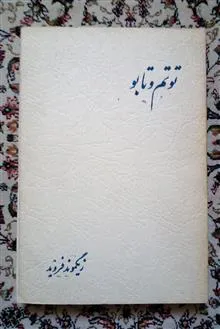 توتم و تابو
زیگموند فروید